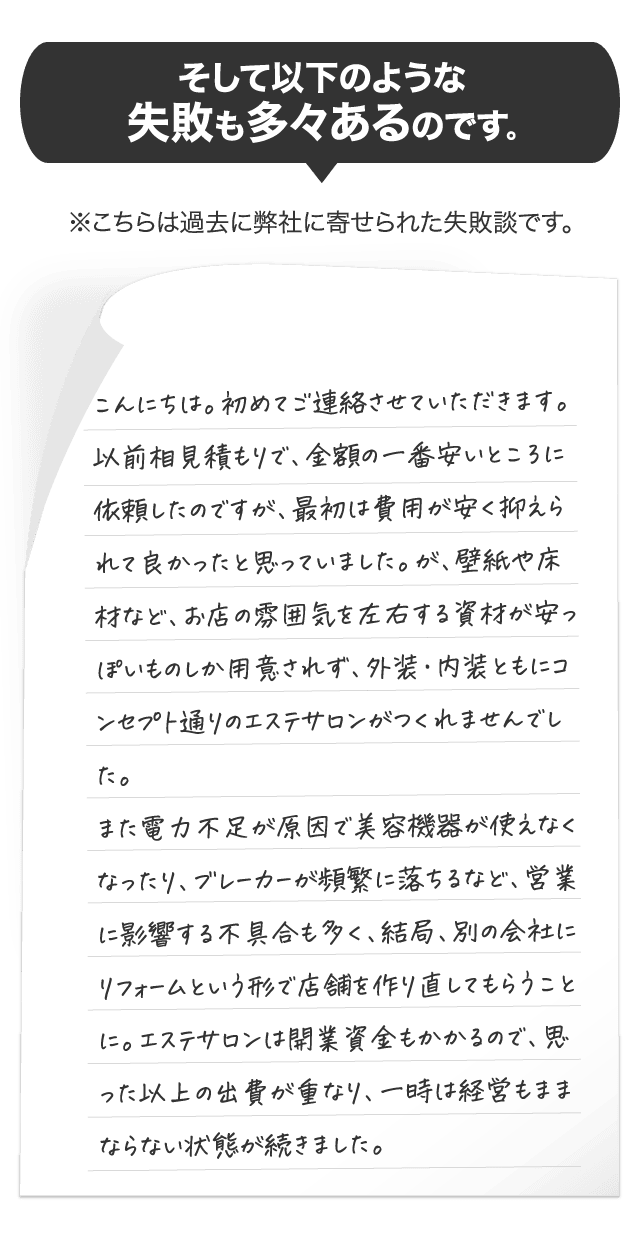 そして以下のような
失敗も多々あるのです。
※こちらは過去に弊社に寄せられた失敗談です。
こんにちは。初めてご連絡させていただきます。
以前相見積もりで、金額の一番安いところに
依頼したのですが、最初は費用が安く抑えら
れて良かったと思っていました。が、壁紙や床
材など、お店の雰囲気を左右する資材が安っ
ぽいものしか用意されず、外装・内装ともにコ
ンセプト通りのエステサロンがつくれませんでし
た。
また電力不足が原因で美容機器が使えなく
なったり、ブレーカーが頻繁に落ちるなど、営業
に影響する不具合も多く、結局、別の会社に
リフォームという形で店舗を作り直してもらうこと
に。エステサロンは開業資金もかかるので、思
った以上の出費が重なり、一時は経営もまま
ならない状態が続きました。